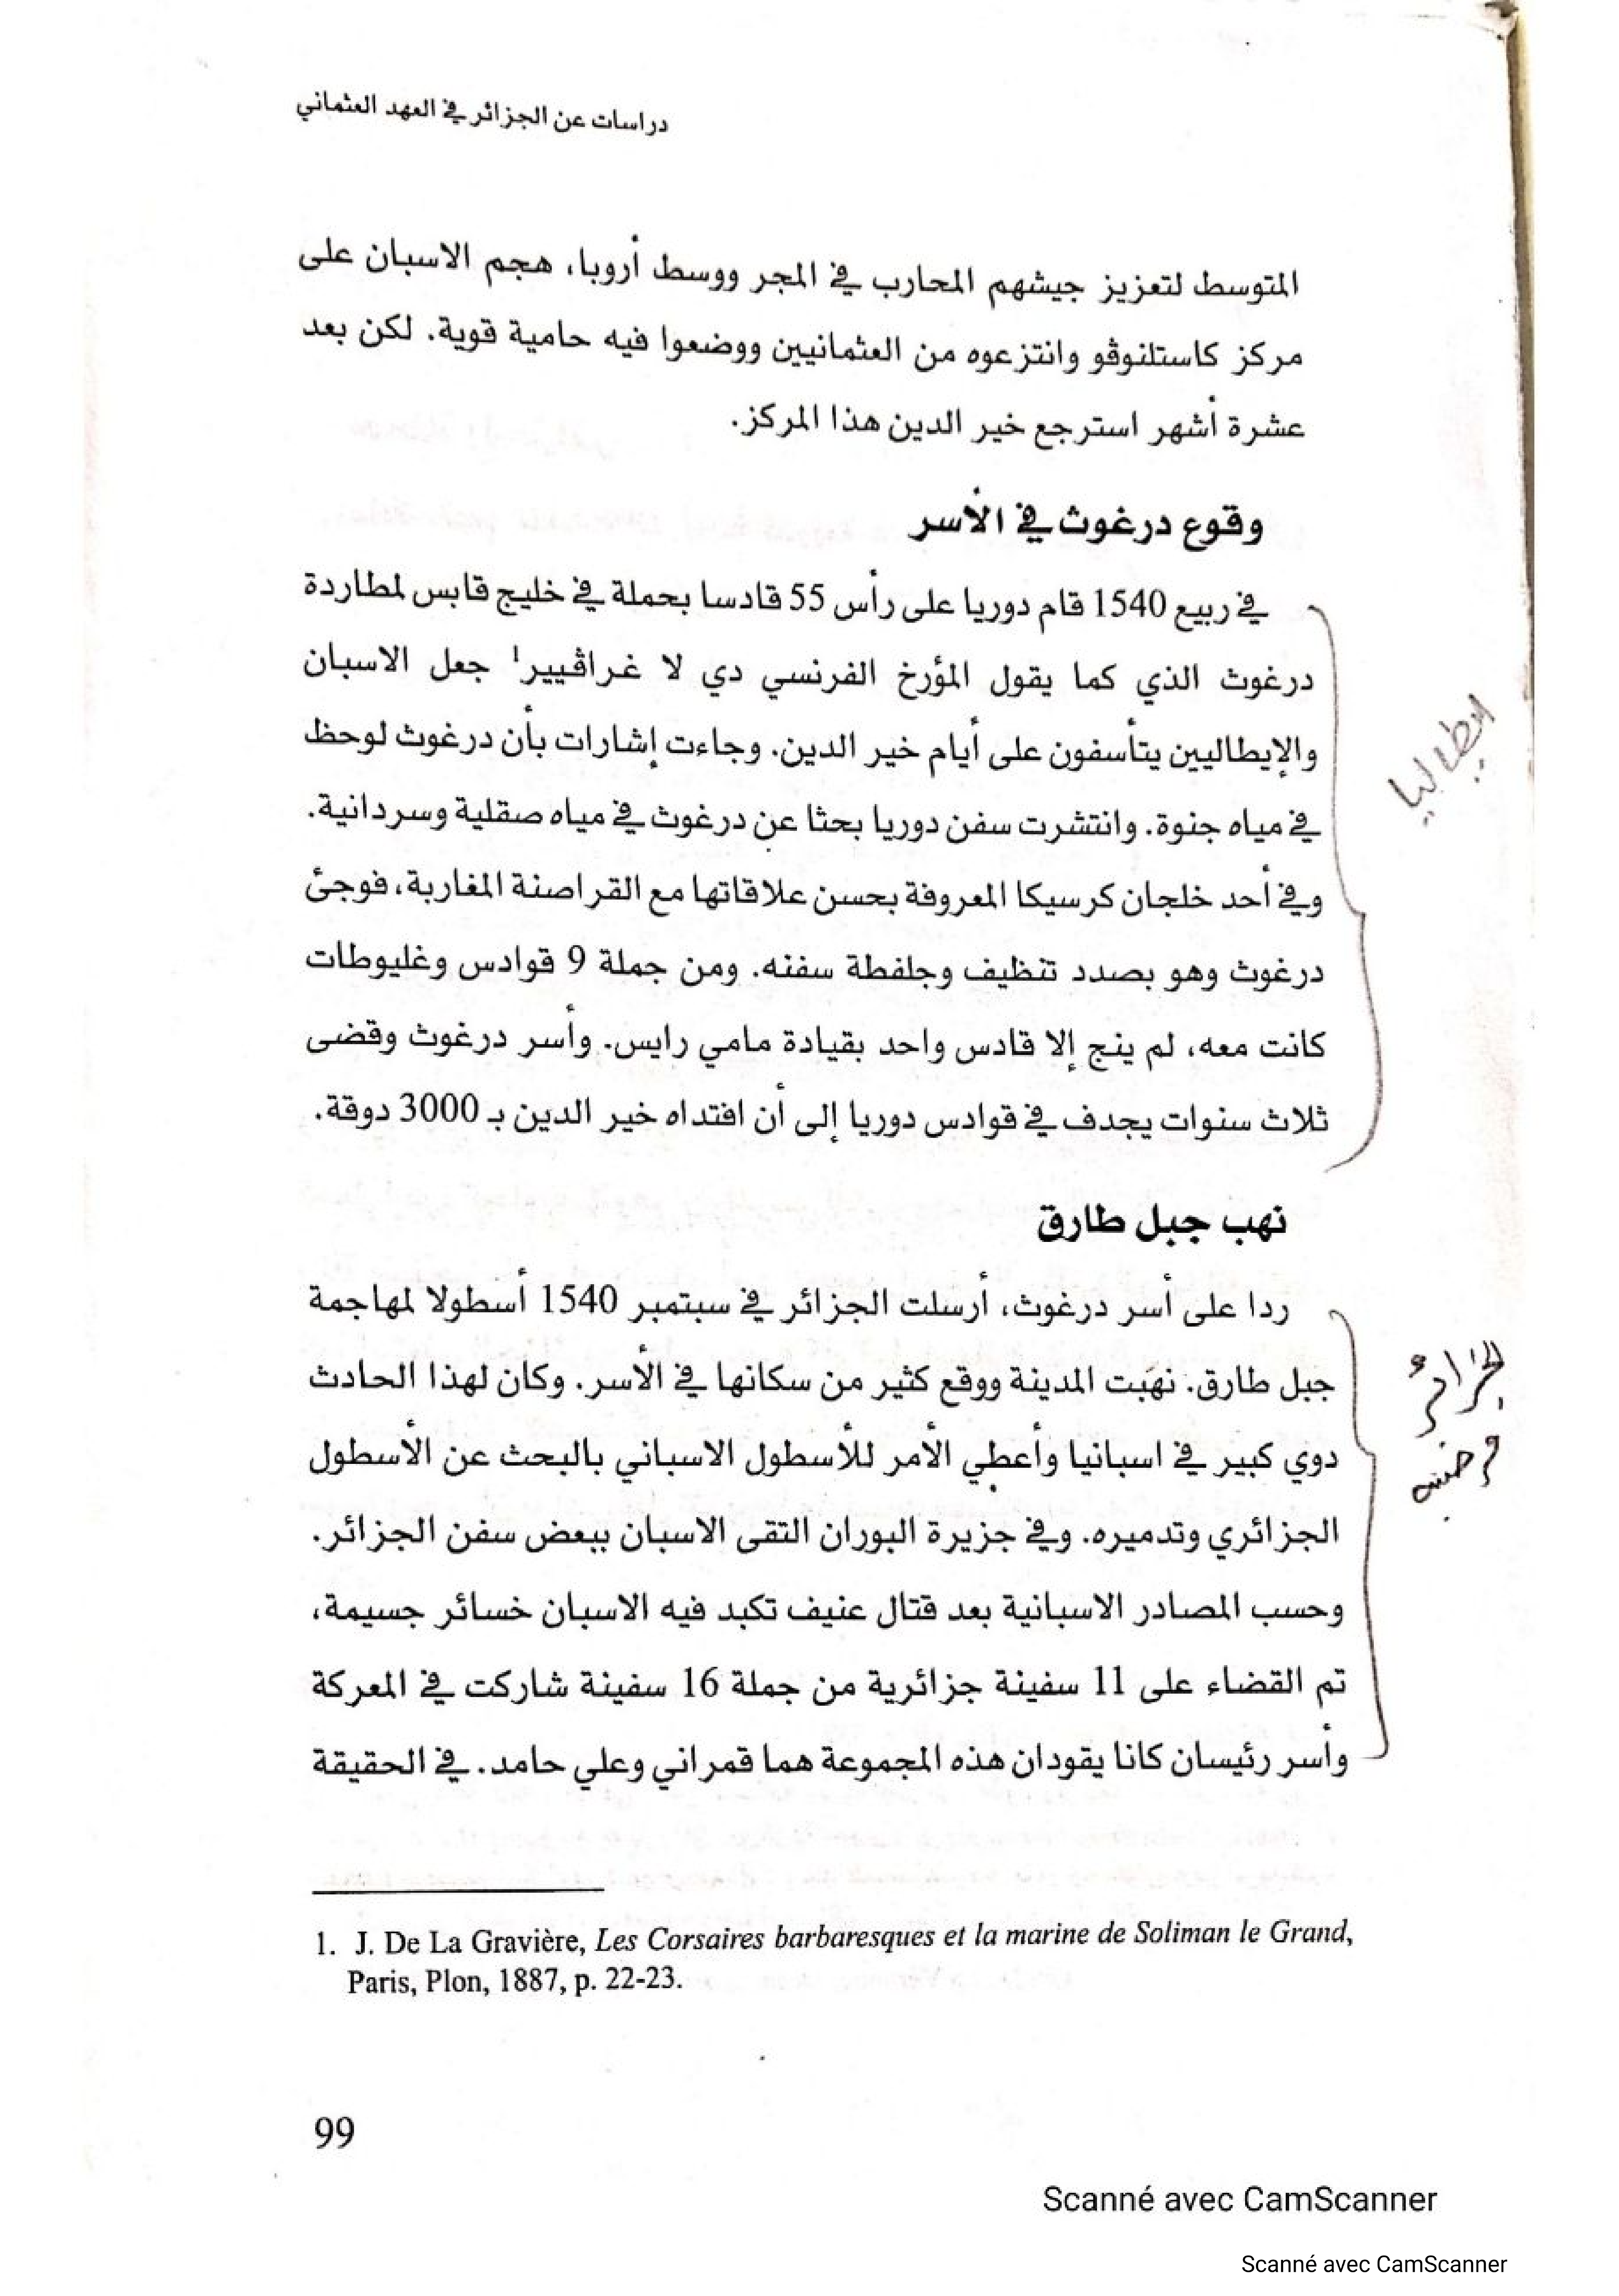 دراسات عن الجزائر في العهد العثماني
المتوسط لتعزيز جيشهم المحارب في المجر ووسط أروبا، هجم الاسبان على
مركز كاستلنوڤو وانتزعوه من العثمانيين ووضعوا فيه حامية قوية. لكن بعد
عشرة أشهر استرجع خير الدين هذا المركز.
وقوع درغوث في الأسر
في ربيع 1540 قام دوريا على رأس 55 قادسا بحملة في خليج قابس لمطاردة
درغوث الذي كما يقول المؤرخ الفرنسي دي لا غراڤيير¹ جعل الاسبان
والإيطاليين يتأسفون على أيام خير الدين. وجاءت إشارات بأن درغوث لوحظ
في مياه جنوة. وانتشرت سفن دوريا بحثا عن درغوث في مياه صقلية وسردانية.
وفي أحد خلجان كرسيكا المعروفة بحسن علاقاتها مع القراصنة المغاربة، فوجئ
درغوث وهو بصدد تنظيف وجلفطة سفنه. ومن جملة 9 قوادس وغليوطات
كانت معه، لم ينج إلا قادس واحد بقيادة مامي رايس. وأسر درغوث وقضى
ثلاث سنوات يجدف في قوادس دوريا إلى أن افتداه خير الدين بـ 3000 دوقة.
ايطاليا
نهب جبل طارق
ردا على أسر درغوث، أرسلت الجزائر في سبتمبر 1540 أسطولا لمهاجمة
جبل طارق. نهبت المدينة ووقع كثير من سكانها في الأسر. وكان لهذا الحادث
دوي كبير في اسبانيا وأعطي الأمر للأسطول الاسباني بالبحث عن الأسطول
الجزائري وتدميره. وفي جزيرة البوران التقى الاسبان ببعض سفن الجزائر.
وحسب المصادر الاسبانية بعد قتال عنيف تكبد فيه الاسبان خسائر جسيمة،
تم القضاء على 11 سفينة جزائرية من جملة 16 سفينة شاركت في المعركة
وأسر رئيسان كانا يقودان هذه المجموعة هما قمراني وعلي حامد. في الحقيقة
الجزائر
1. J. De La Gravière, Les Corsaires barbaresques et la marine de Soliman le Grand,
Paris, Plon, 1887, p. 22-23.
99
Scanné avec CamScanner
Scanné avec CamScanner